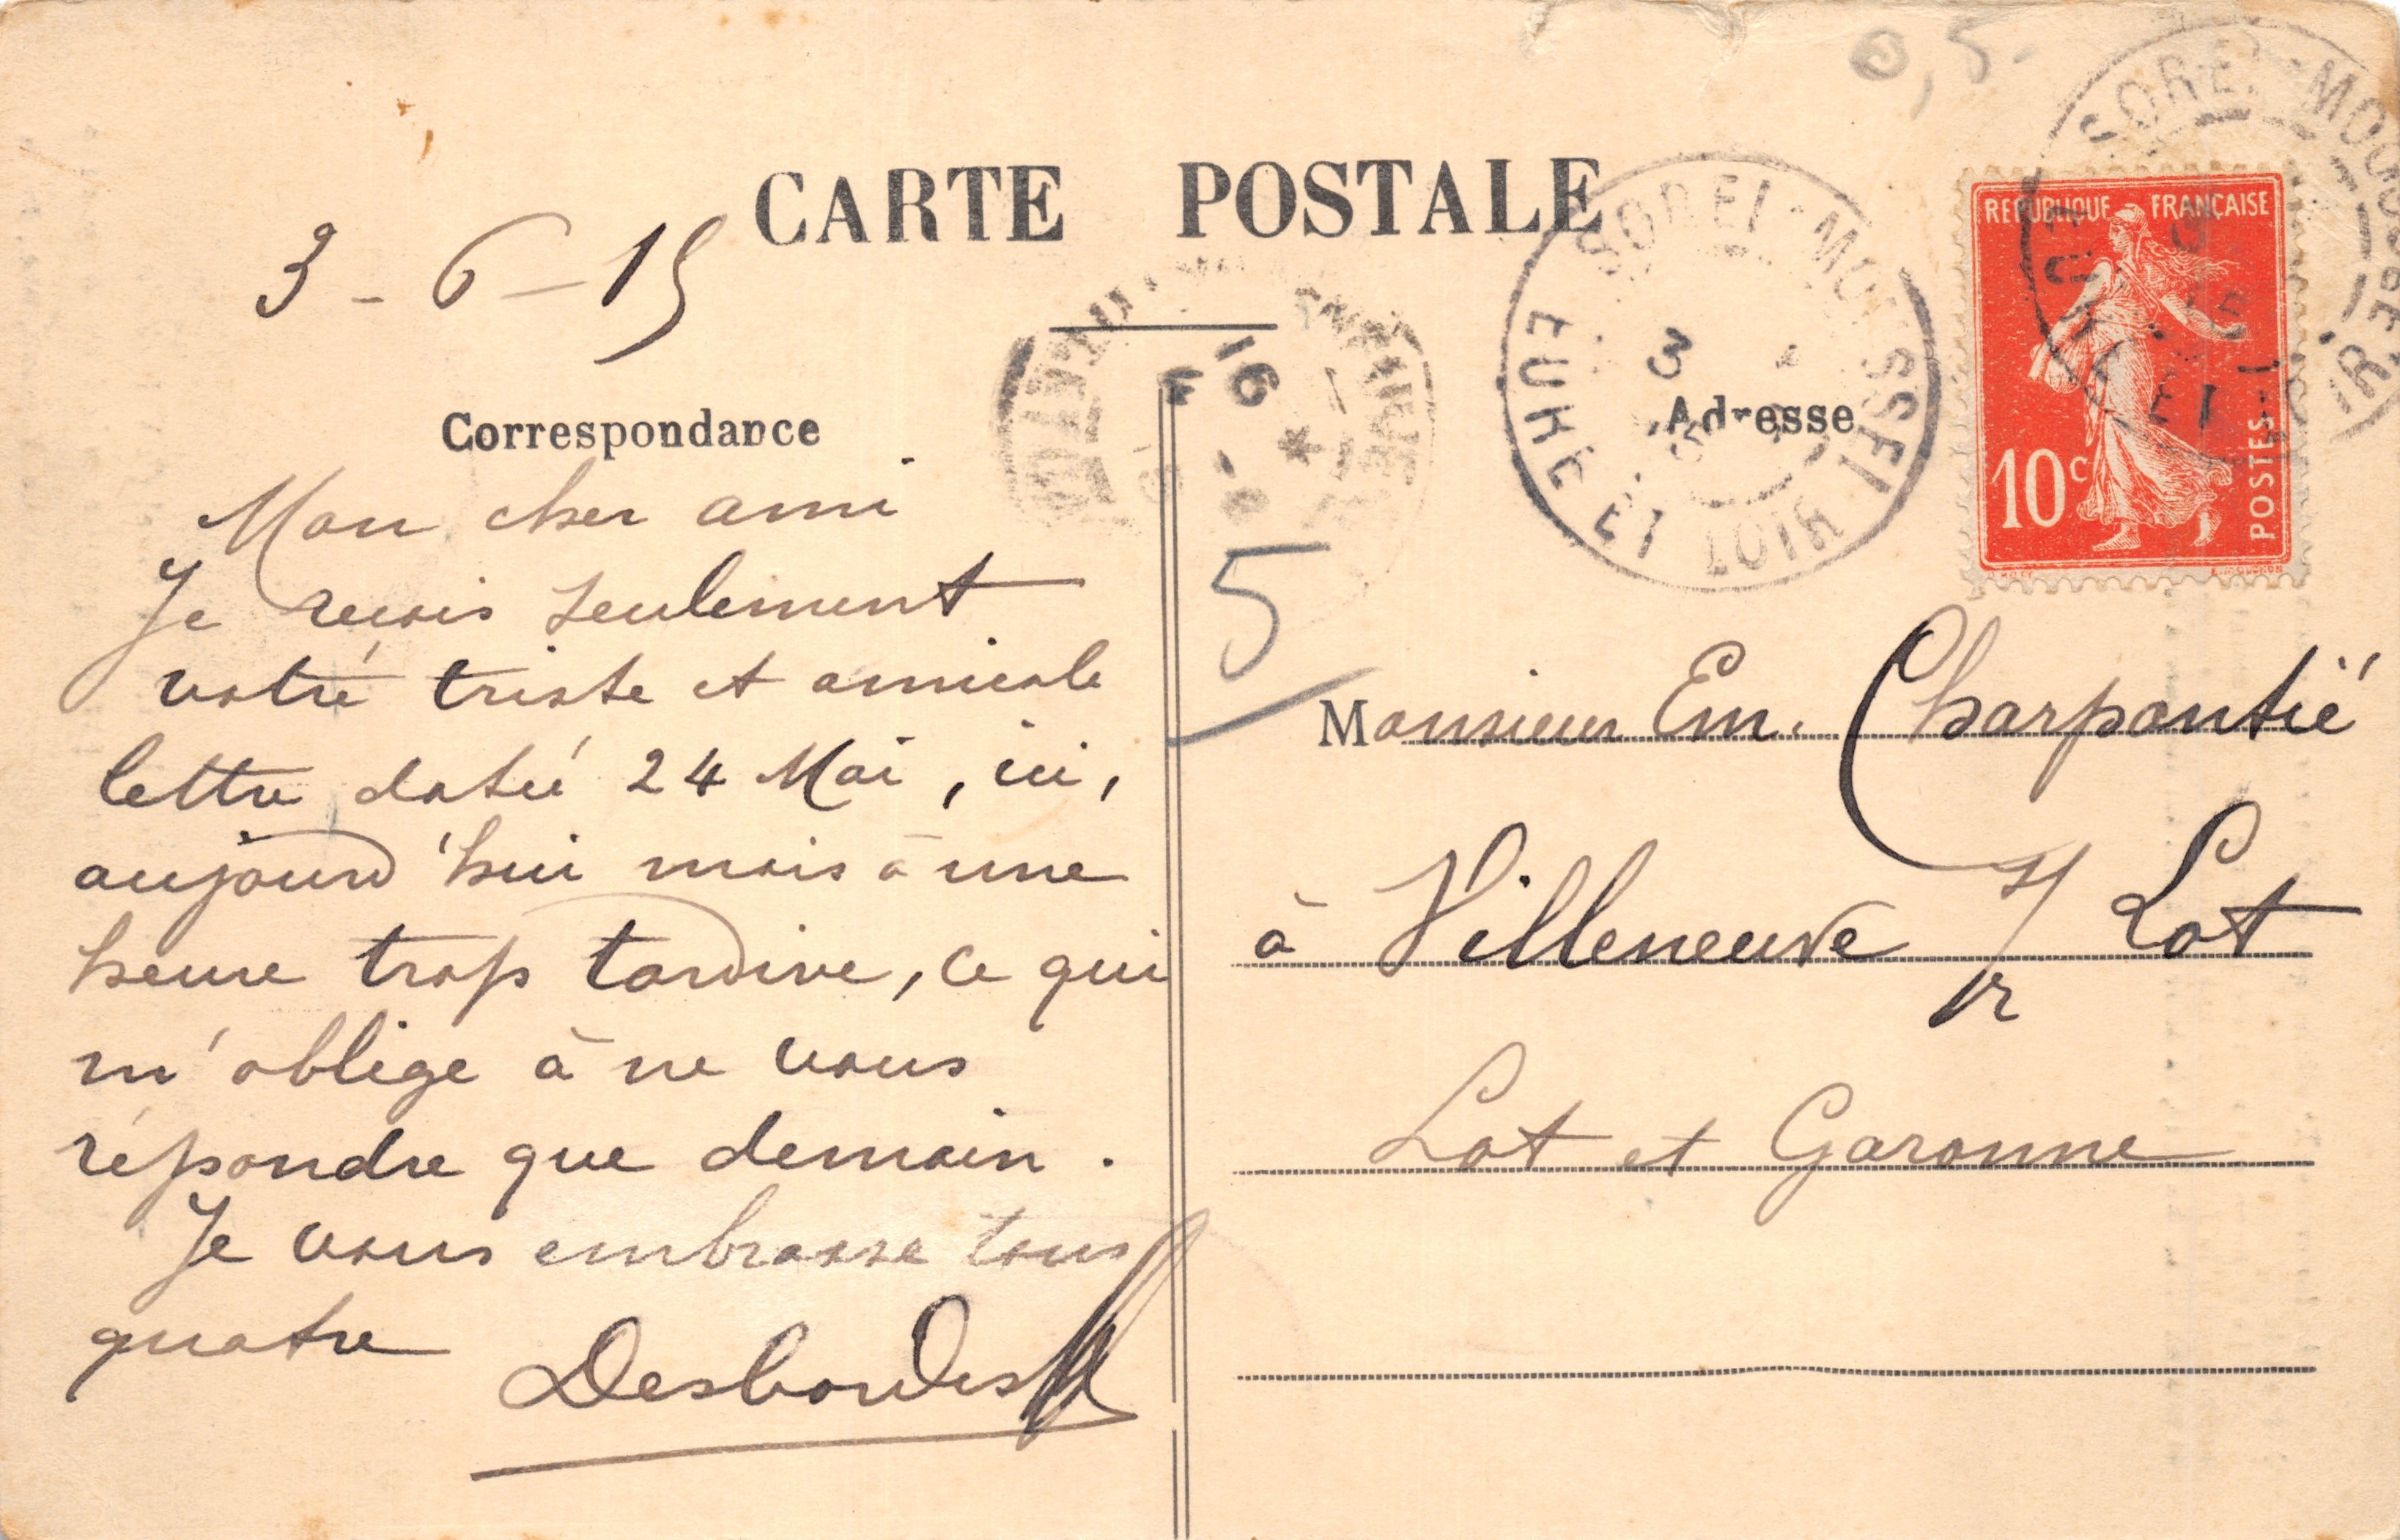 0,5-
CARTE POSTALE
3-6-15
Correspondance
Mon cher ami
Je reçois seulement
votre triste et amicale
lettre datée 24 Mai, ici,
aujourd'hui mais à une
heure trop tardive, ce qui
m'oblige à ne vous
répondre que demain.
Je vous embrasse tous
quatre
Desbordes
16
5
SOREL-MOUSSEL
EURE ET LOIR
3
Adresse
SOREL-MOUSSEL
EURE ET LOIR
REPUBLIQUE FRANÇAISE
10c
POSTES
Monsieur Em. Charpantié
à Villeneuve s/r Lot
Lot et Garonne